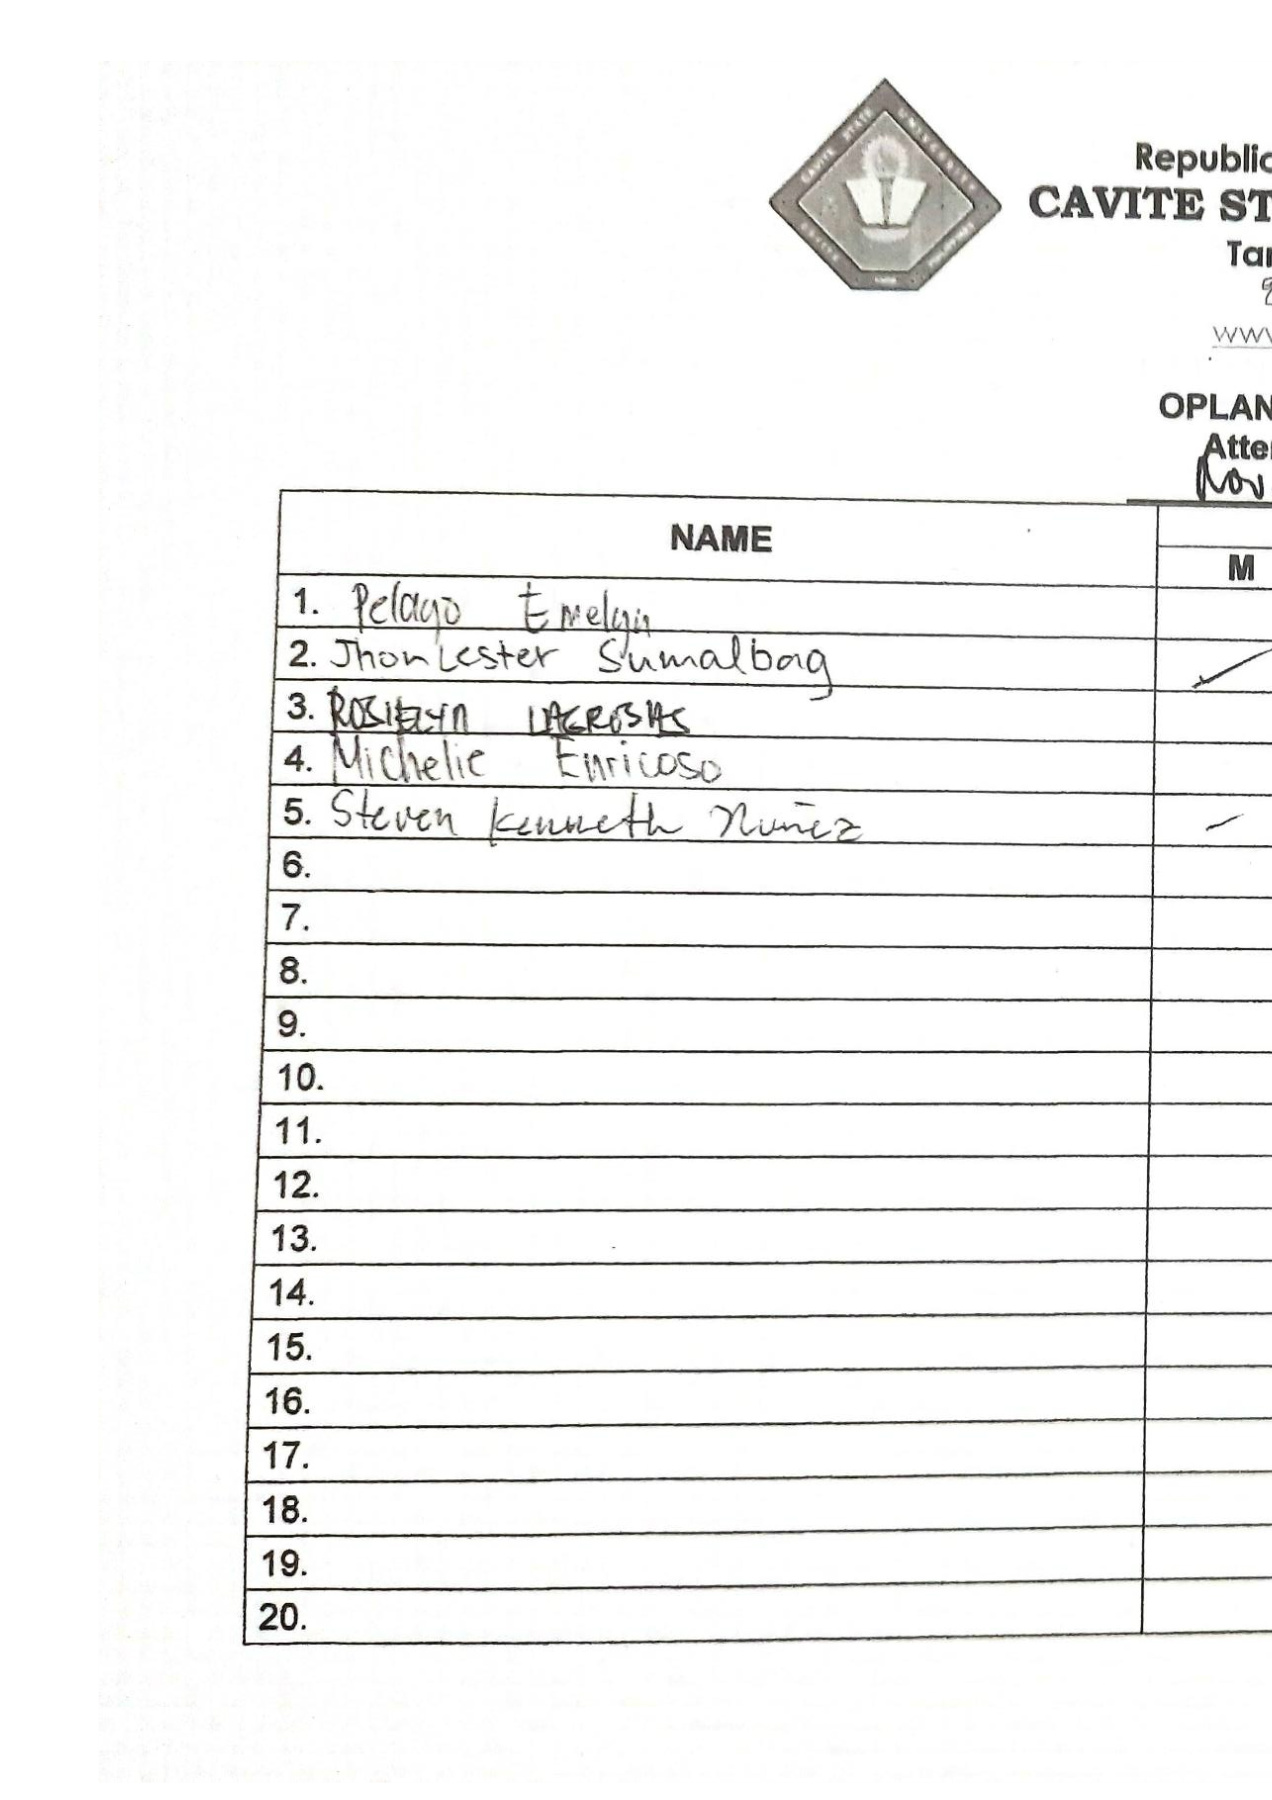 CAVITE STATE UNIVERSITY
Republic
CAVITE ST
Tar
www
OPLAN
Atte
Nov
NAME
M
1. Pelayo Emelyn
2. Jhon Lester Sumalbag
3. ROSIELYN LAGROSAS
4. Michelie Enricoso
5. Steven Kenneth Nuñez
6.
7.
8.
9.
10.
11.
12.
13.
14.
15.
16.
17.
18.
19.
20.